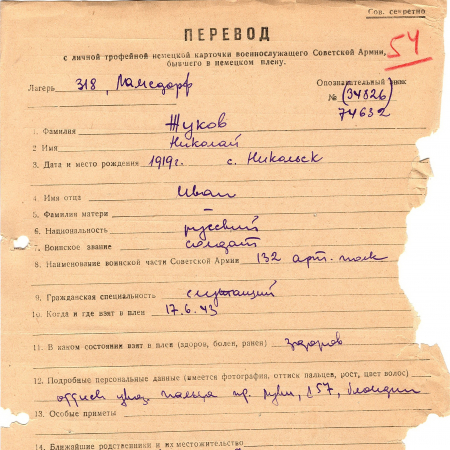 Сов. секретно
ПЕРЕВОД
54
с личной трофейной немецкой карточки военнослужащего Советской Армии,
бывшего в немецком плену.
Лагерь 318, Ламсдорф
Опознавательный знак
№ (34326)
74632
1. Фамилия Жуков
2. Имя Николай
3. Дата и место рождения 1919г. с. Никольск
4. Имя отца Иван
5. Фамилия матери –
6. Национальность русский
7. Воинское звание солдат
8. Наименование воинской части Советской Армии 132 арт. полк
9. Гражданская специальность служащий
10. Когда и где взят в плен 17.6.43
11. В каком состоянии взят в плен (здоров, болен, ранен) здоров
12. Подробные персональные данные (имеется фотография, оттиск пальцев, рост, цвет волос)
оттиск указ. пальца пр. руки, 157, блондин
13. Особые приметы
14. Ближайшие родственники и их местожительство